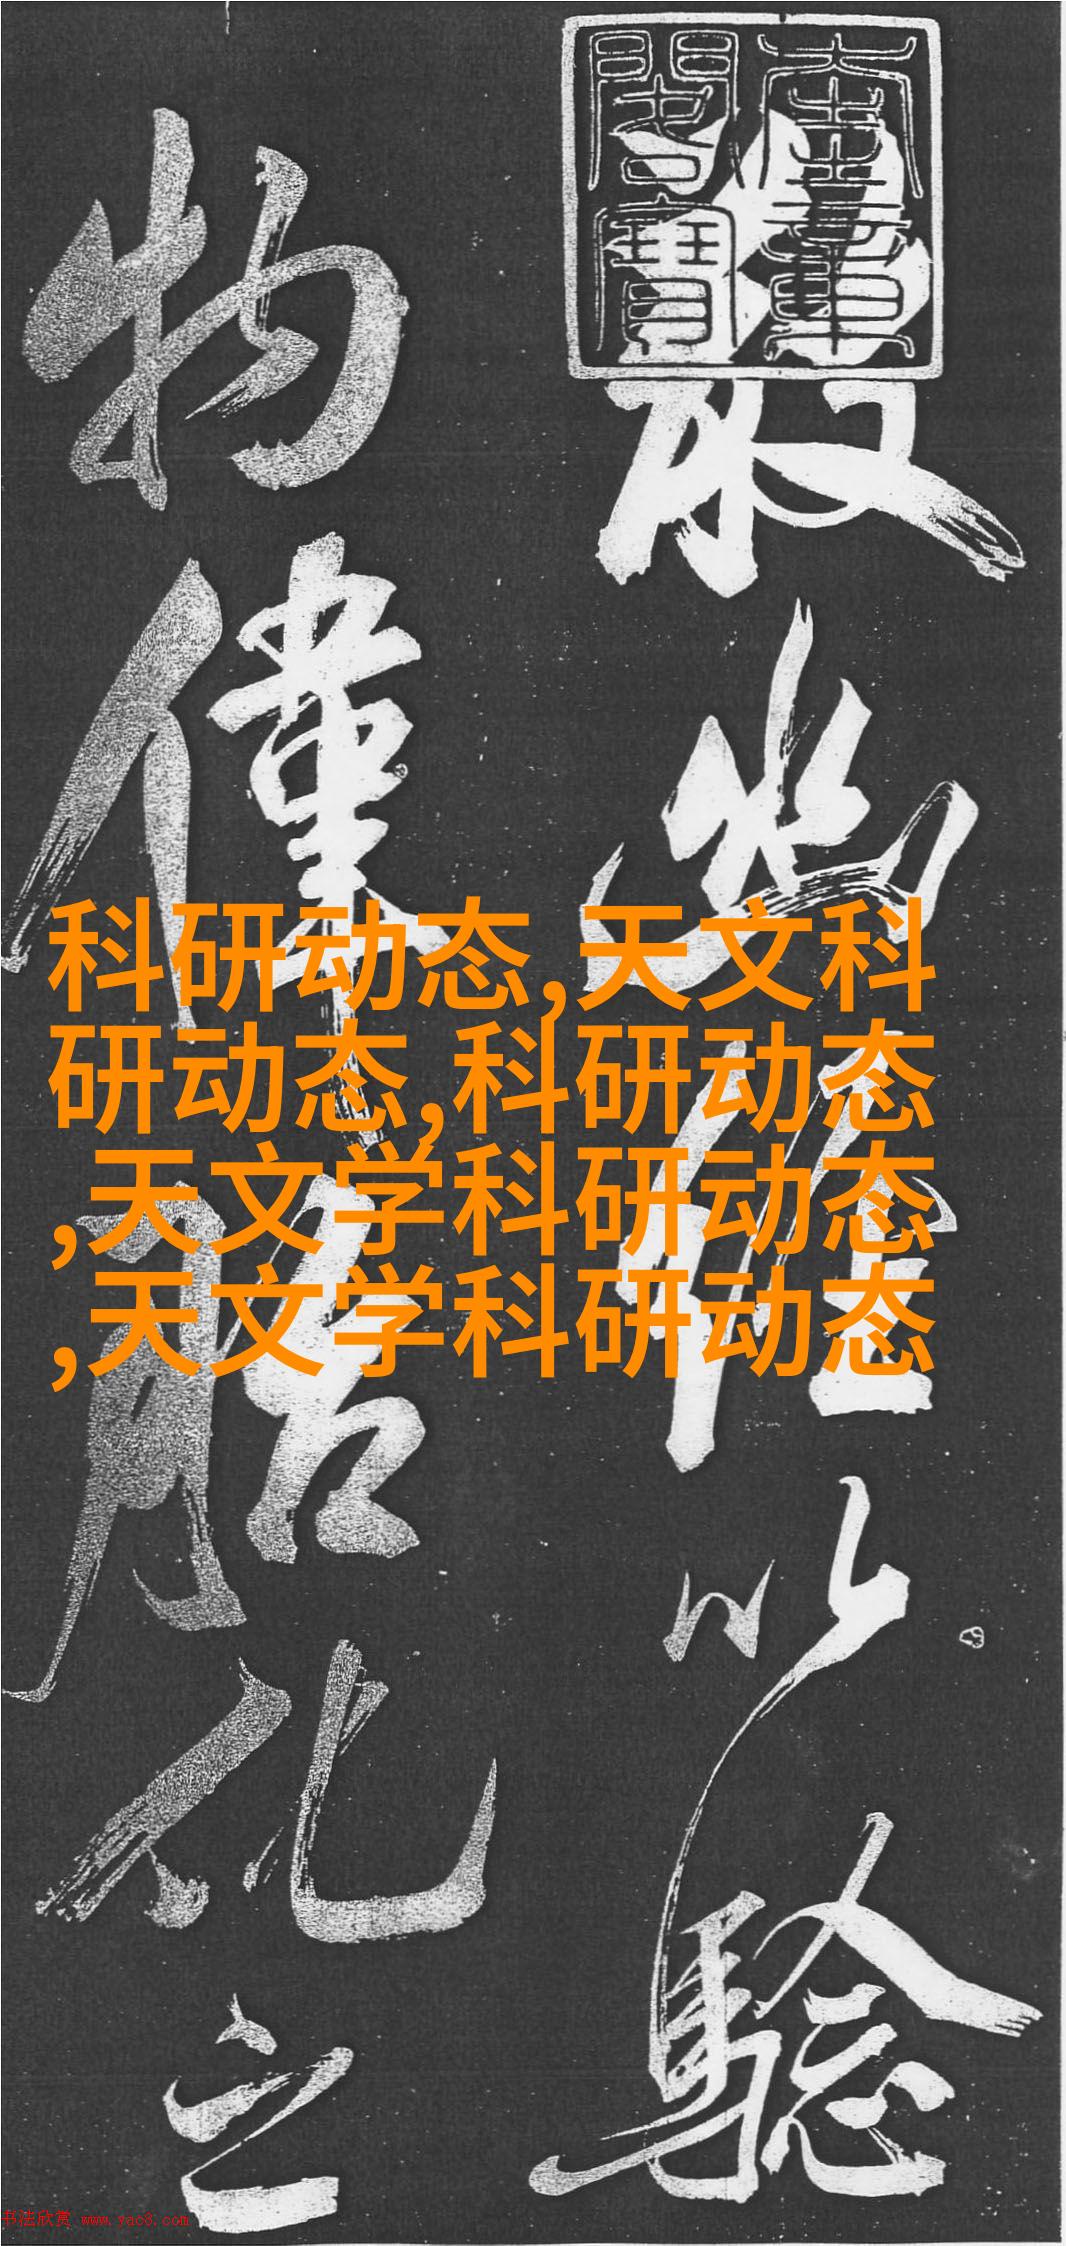 奎章
閣寶
散幽經以驗
物偉胎化之
科研动态,天文科
研动态,科研动态
,天文学科研动态
,天文学科研动态
书法欣赏 www.yac8.com